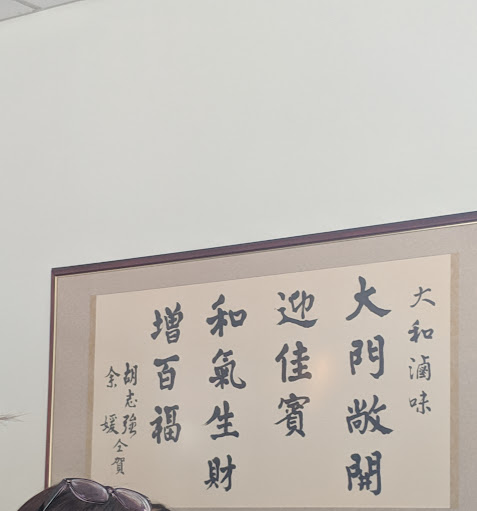 大和滷味
大門敞開
迎佳賓
和氣生財
增百福
胡志強
余媛仝賀